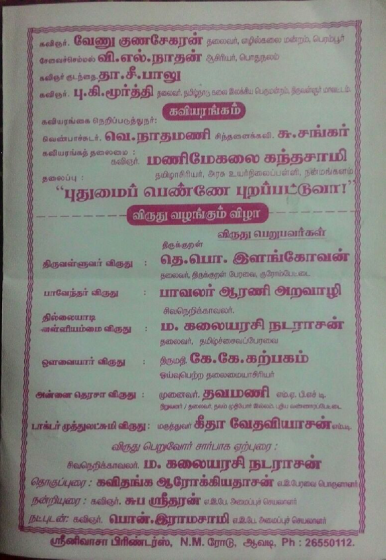 கவிஞர். வேணு குணசேகரன் தலைவர், எழில்கலை மன்றம், பெரம்பூர்
சேலவச்செம்மல் வி.எல்.நாதன் ஆசிரியர், பொதுநலம்
கவிஞர் குடந்தை தா.சீ.பாலு
கவிஞர் பு.கி.மூர்த்தி தலைவர், தமிழ்நாட்டு கலை இலக்கிய பெருமன்றம், திருவள்ளூர் மாவட்டம்.
கவியரங்கம்
கவியரங்கை நெறிப்படுத்துநர்:
வெண்பாச்சுடர். வெ.நாதமணி சிந்தனைக்கவி. சு.சங்கர்
கவியரங்கத் தலைமை :
கவிஞர் மணிமேகலை கந்தசாமி
தமிழாசிரியர், அரசு உயர்நிலைப்பள்ளி,
தலைப்பு :
"புதுமைப் பெண்ணே புறப்பட்டுவா!"
விருது வழங்கும் விழா
விருது பெறுபவர்கள்
திருவள்ளுவர் விருது : திருக்குறள் தெ.பொ. இளங்கோவன்
தலைவர், திருக்குறள் பேரவை, குரோம்பேட்டை
பாவேந்தர் விருது : பாவலர் ஆரணி அறவாழி
தில்லையாடி வள்ளியம்மை விருது : சிவநெறிக்காவலர். ம. கலையரசி நடராசன்
தலைவர், தமிழ்ச்சைவப்பேரவை
ஔவையார் விருது : திருமதி. கே.கே.கற்பகம்
ஓய்வுபெற்ற தலைமையாசிரியர்
அன்னை தெரசா விருது : முனைவர். தவமணி எம்.ஏ. பி.எச் டி.
டாக்டர் முத்துலட்சுமி விருது : மருத்துவர் கீதா வேதவியாசன்
விருது பெறுவோர் சார்பாக ஏற்புரை :
சிவநெறிக்காவலர், ம. கலையரசி நடராசன்
தொகுப்புரை : கவிதங்க ஆரோக்கியதாசன்
நன்றியுரை : கவிஞர். சுப ஸ்ரீதரன்
நட்புடன் கவிஞர். பொன்.இராமசாமி
ஸ்ரீனிவாசா பிரிண்டர்ஸ், N.M. ரோடு, ஆவடி. Ph : 26550112.